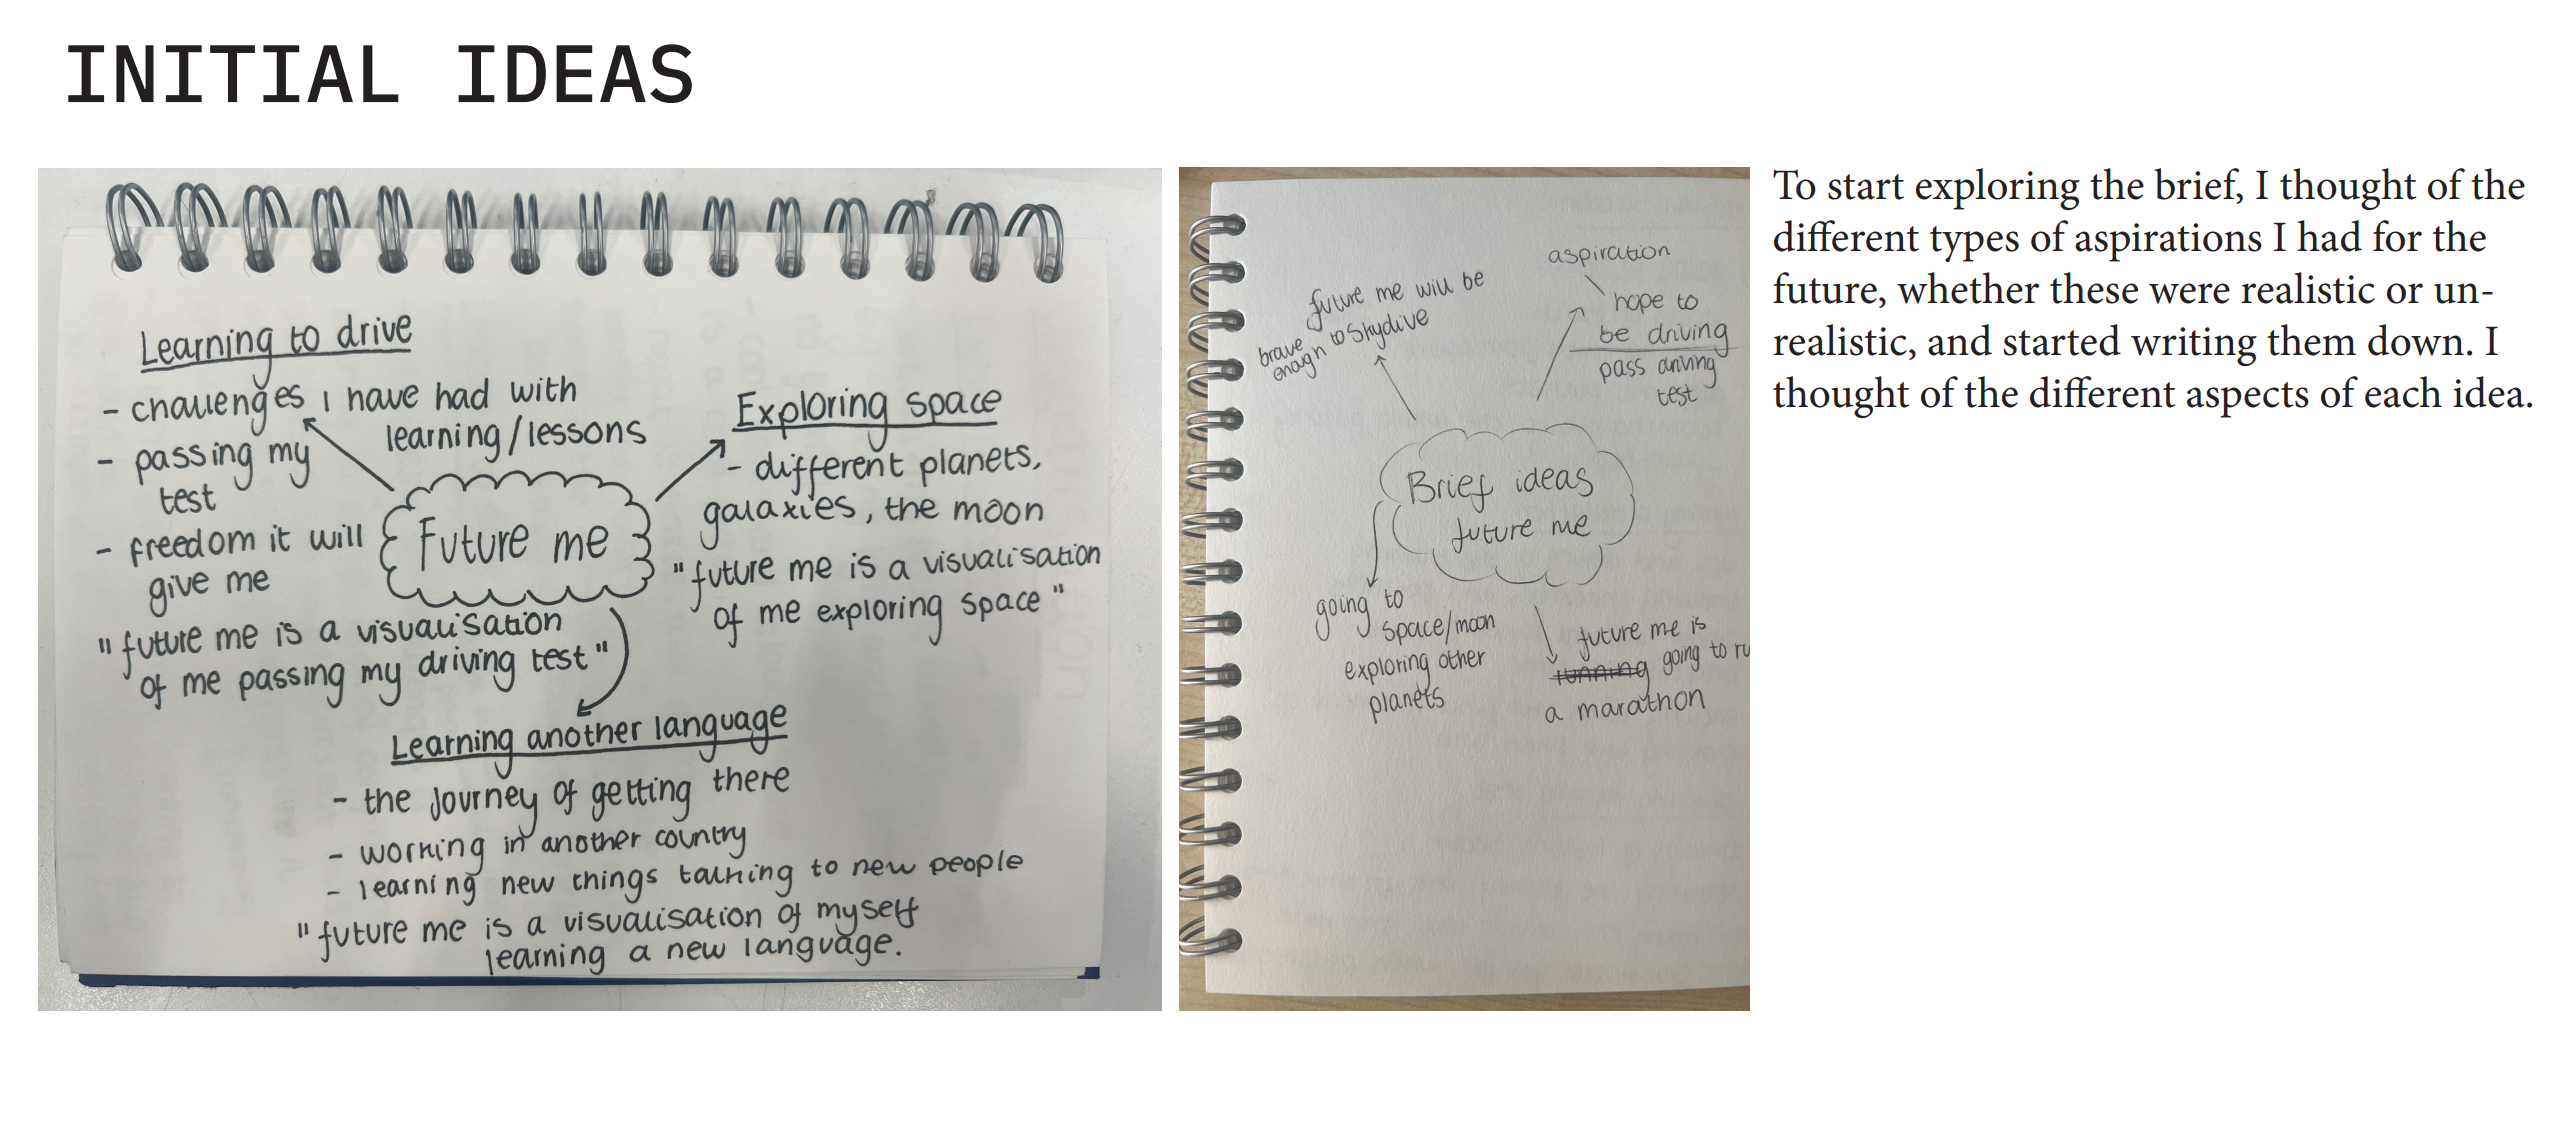 INITIAL IDEAS
Learning to drive
- challenges I have had with
learning/lessons
- passing my
test
- freedom it will
give me
"future me is a visualisation
of me passing my driving test"
Future me
Exploring space
- different planets,
galaxies, the moon
"future me is a visualisation
of me exploring space"
Learning another language
- the journey of getting there
- working in another country
- learning new things talking to new people
"future me is a visualisation of myself
learning a new language.
future me will be
brave
enogh to Skydive
aspiration
hope to
be driving
pass driving
test
Brief ideas
future me
going to
space/moon
exploring other
planets
future me is
running going to ru
a marathon
To start exploring the brief, I thought of the
different types of aspirations I had for the
future, whether these were realistic or un-
realistic, and started writing them down. I
thought of the different aspects of each idea.